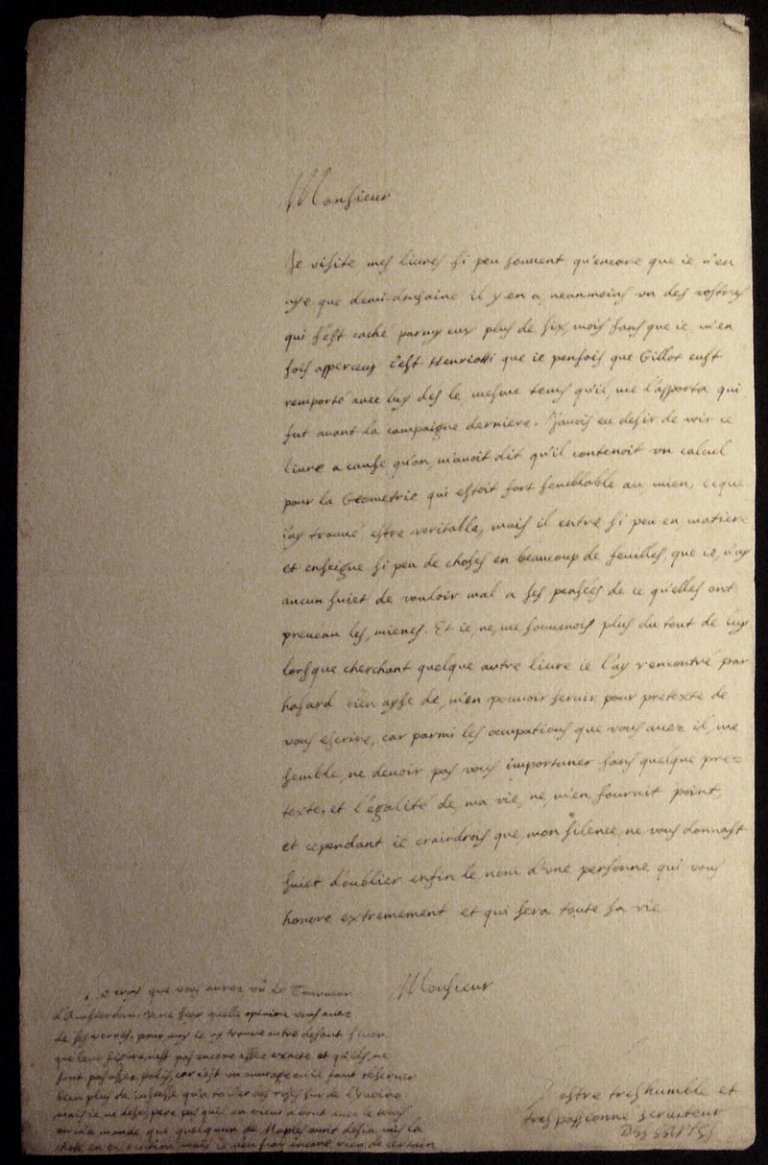 Monsieur
Je visite mes liures si peu souuent qu'encore que ie n'en
aye que demi-dousaine il y en a neanmoins vn des vostres
qui s'est caché parmy eux plus de six mois sans que ie m'en
sois apperceu c'est Henriotti que ie pensois que Gillot eust
remporté auec luy dés le mesme tems qu'il me l'apporta qui
fut auant la campaigne derniere. J'auois eu desir de voir ce
liure a cause qu'on m'auoit dit qu'il contenoit vn calcul
pour la Geometrie qui estoit fort semblable au mien, ceque
i'ay trouué estre veritable, mais il entre si peu en matiere
et enseigne si peu de choses en beaucoup de feuilles, que ie n'ay
aucun suiet de vouloir mal a ses pensées de ce qu'elles ont
preuenu les mienes. Et ie ne me souuenois plus du tout de luy
lorsque cherchant quelque autre liure ie l'ay rencontré par
hasard bien ayse de m'en pouuoir seruir pour pretexte de
vous escrire, car parmi les occupations que vous auez il me
semble ne deuoir pas vous importuner sans quelque pre=
texte, et l'égalité de ma vie ne m'en fournit point,
et cependant ie craindrois que mon silence ne vous donnast
suiet d'oublier enfin le nom d'vne personne qui vous
honore extremement et qui sera toute sa vie
Monsieur
Vostre tres humble et
tres passionné seruiteur
Descartes
Je croy que vous aurez vû le Tourneur
d'Amsterdam ie ne sçay quelle opinion vous auez
de ses verres, pour moy ie n'y trouue autre defaut sinon
que leur figure n'est pas encore assez exacte et qu'ils ne
sont pas assez polis, car c'est un ouurage ou il faut obseruer
beaucoup plus de
mais ie ne desespere pas qu'on n'en viene a bout auec le tems
on m'a mandé que quelqu'un de Naples auoit desia mis la
chose en execution mais ie n'en sçay encore rien de certain